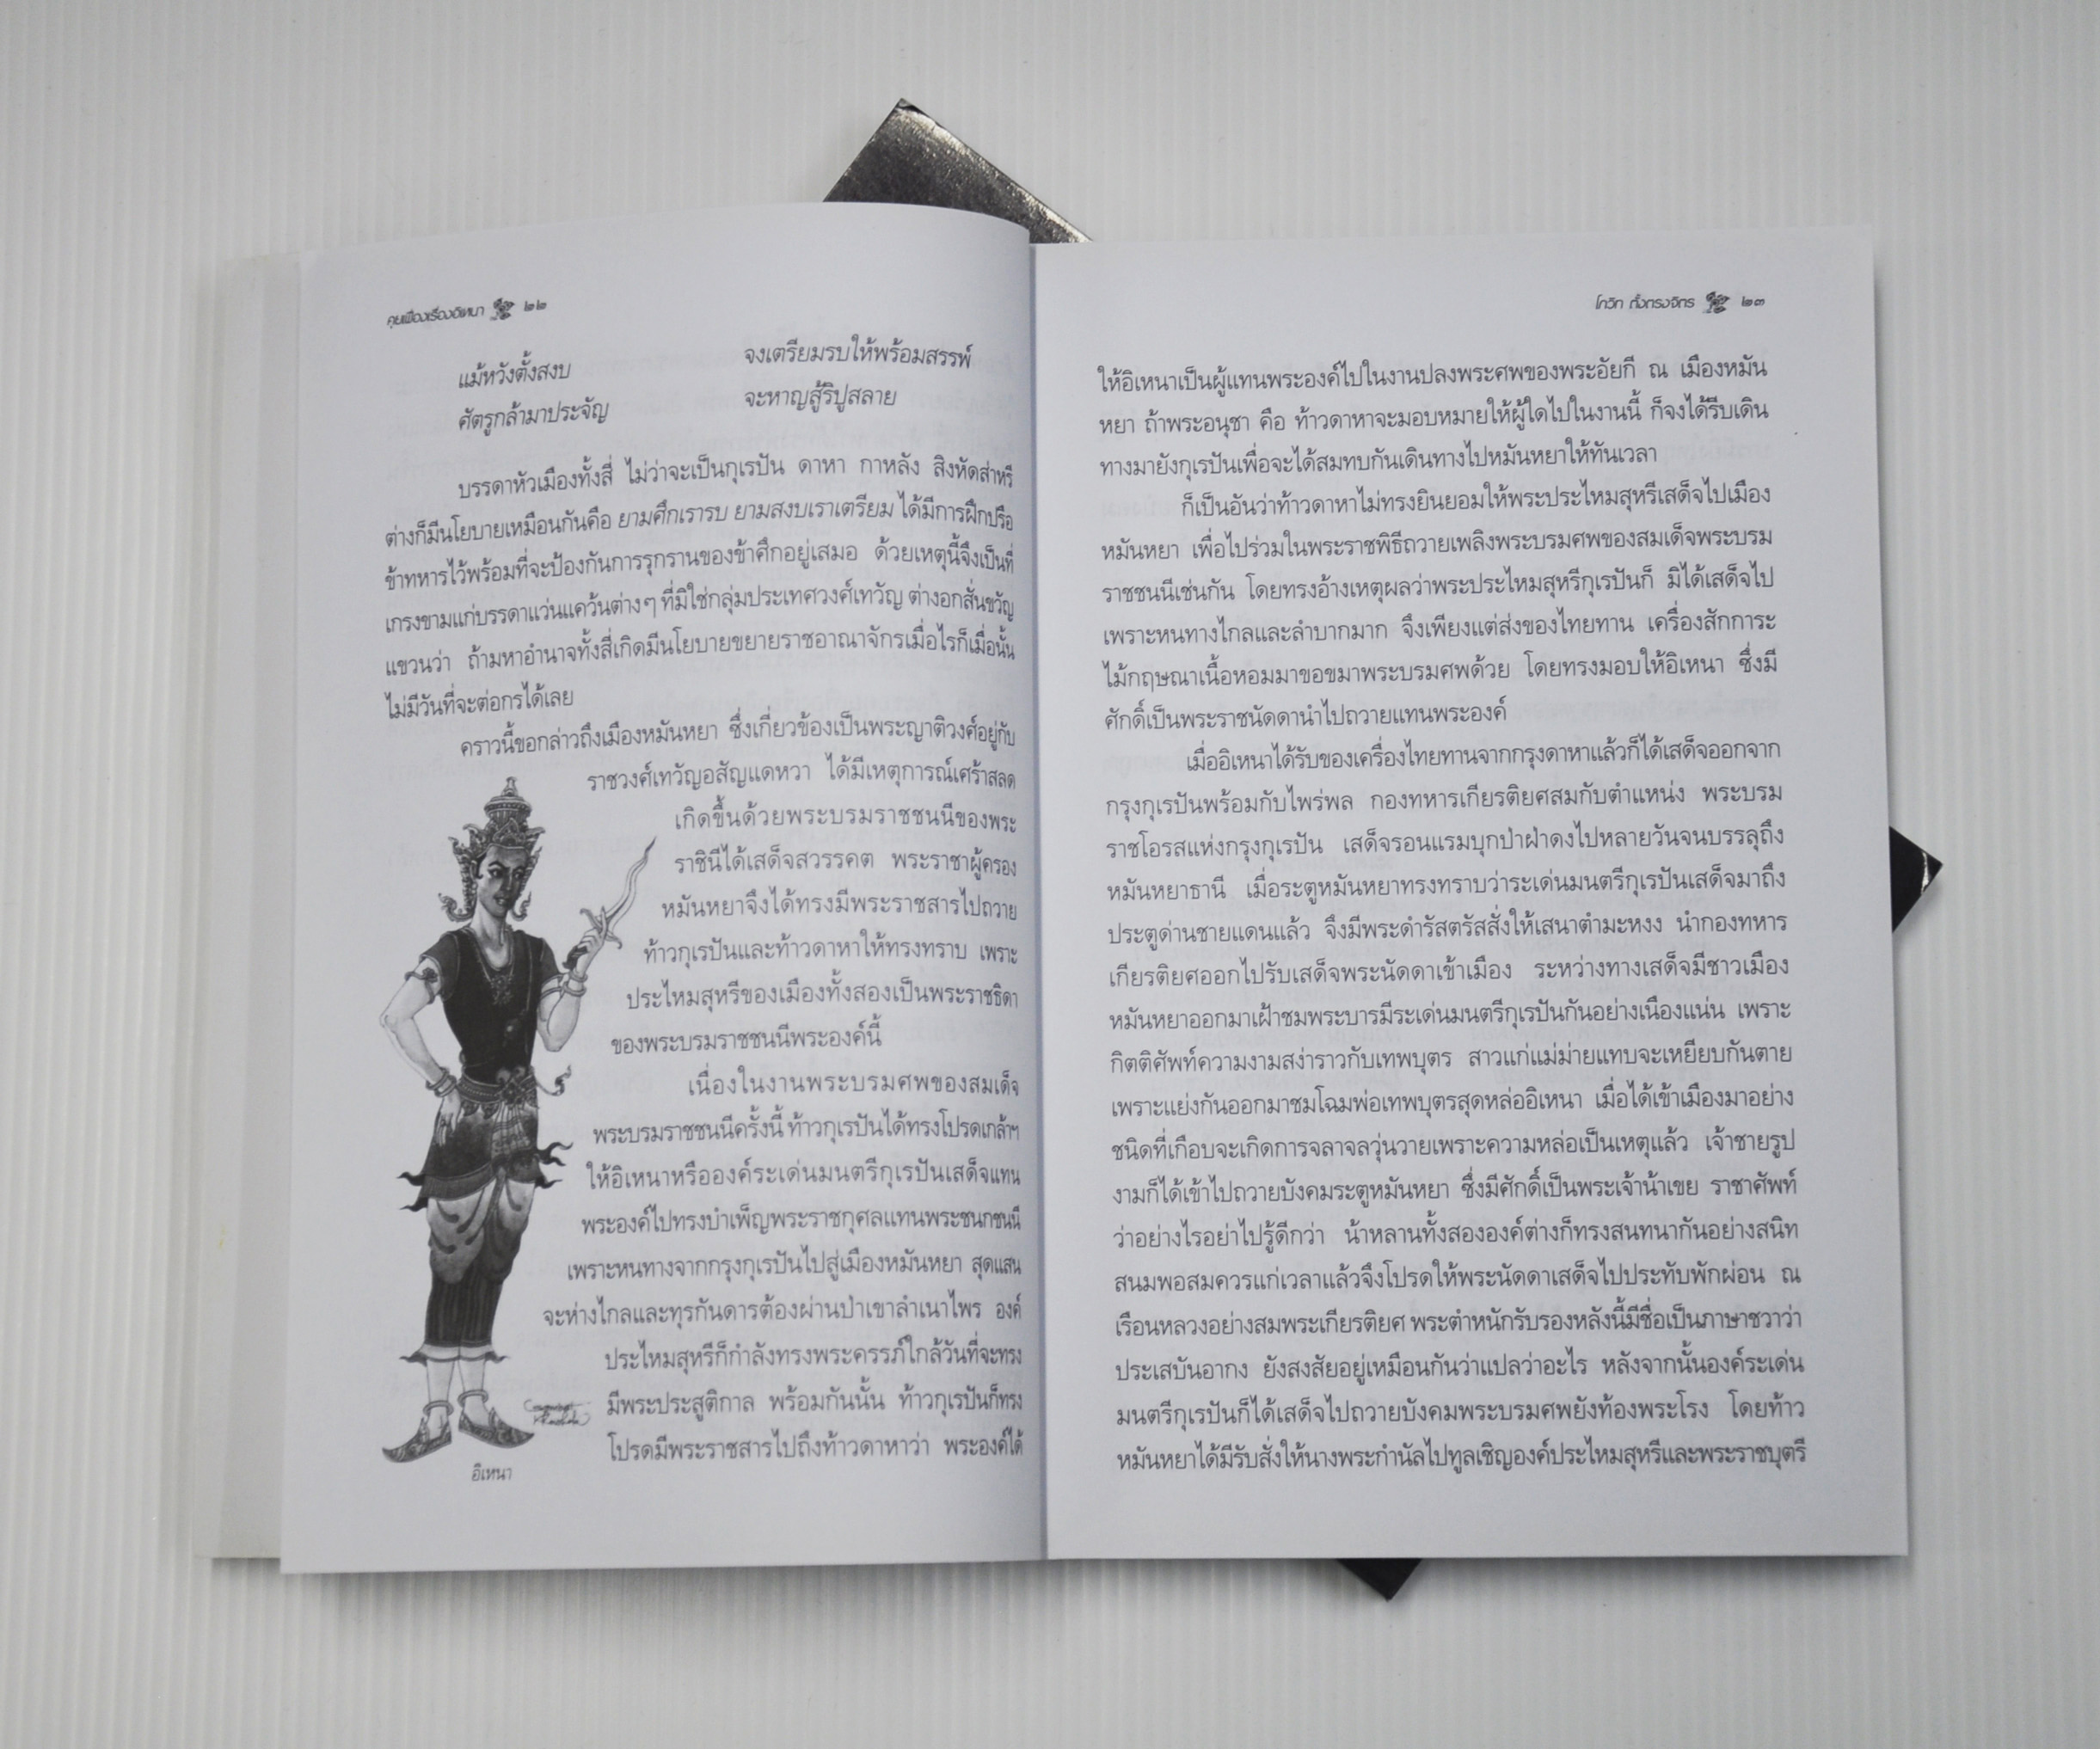 คุยเฟื่องเรื่องอิเหนา ๒๒
แม้หวังตั้งสงบ จงเตรียมรบให้พร้อมสรรพ์
ศัตรูกล้ามาประจัญ จะหาญสู้ริปูสลาย
บรรดาหัวเมืองทั้งสี่ ไม่ว่าจะเป็นกุเรปัน ดาหา กาหลัง สิงหัดส่าหรี
ต่างก็มีนโยบายเหมือนกันคือ ยามศึกเรารบ ยามสงบเราเตรียม ได้มีการฝึกปรือ
ข้าทหารไว้พร้อมที่จะป้องกันการรุกรานของข้าศึกอยู่เสมอ ด้วยเหตุนี้จึงเป็นที่
เกรงขามแก่บรรดาแว่นแคว้นต่างๆ ที่มิใช่กลุ่มประเทศวงศ์เทวัญ ต่างอกสั่นขวัญ
แขวนว่า ถ้ามหาอำนาจทั้งสี่เกิดมีนโยบายขยายราชอาณาจักรเมื่อไรก็เมื่อนั้น
ไม่มีวันที่จะต่อกรได้เลย
คราวนี้ขอกล่าวถึงเมืองหมันหยา ซึ่งเกี่ยวข้องเป็นพระญาติวงศ์อยู่กับ
ราชวงศ์เทวัญอสัญแดหวา ได้มีเหตุการณ์เศร้าสลด
เกิดขึ้นด้วยพระบรมราชชนนีของพระ
ราชินีได้เสด็จสวรรคต พระราชาผู้ครอง
หมันหยาจึงได้ทรงมีพระราชสารไปถวาย
ท้าวกุเรปันและท้าวดาหาให้ทรงทราบ เพราะ
ประไหมสุหรีของเมืองทั้งสองเป็นพระราชธิดา
ของพระบรมราชชนนีพระองค์นี้
เนื่องในงานพระบรมศพของสมเด็จ
พระบรมราชชนนีครั้งนี้ ท้าวกุเรปันได้ทรงโปรดเกล้าฯ
ให้อิเหนาหรือองค์ระเด่นมนตรีกุเรปันเสด็จแทน
พระองค์ไปทรงบำเพ็ญพระราชกุศลแทนพระชนกชนนี
เพราะหนทางจากกรุงกุเรปันไปสู่เมืองหมันหยา สุดแสน
จะห่างไกลและทุรกันดารต้องผ่านป่าเขาลำเนาไพร องค์
ประไหมสุหรีก็กำลังทรงพระครรภ์ใกล้วันที่จะทรง
มีพระประสูติกาล พร้อมกันนั้น ท้าวกุเรปันก็ทรง
โปรดมีพระราชสารไปถึงท้าวดาหาว่า พระองค์ได้
อิเหนา
โกวิท ตั้งตรงจิตร ๒๓
ให้อิเหนาเป็นผู้แทนพระองค์ไปในงานปลงพระศพของพระอัยกี ณ เมืองหมัน
หยา ถ้าพระอนุชา คือ ท้าวดาหาจะมอบหมายให้ผู้ใดไปในงานนี้ ก็จงได้รีบเดิน
ทางมายังกุเรปันเพื่อจะได้สมทบกันเดินทางไปหมันหยาให้ทันเวลา
ก็เป็นอันว่าท้าวดาหาไม่ทรงยินยอมให้พระประไหมสุหรีเสด็จไปเมือง
หมันหยา เพื่อไปร่วมในพระราชพิธีถวายเพลิงพระบรมศพของสมเด็จพระบรม
ราชชนนีเช่นกัน โดยทรงอ้างเหตุผลว่าพระประไหมสุหรีกุเรปันก็ มิได้เสด็จไป
เพราะหนทางไกลและลำบากมาก จึงเพียงแต่ส่งของไทยทาน เครื่องสักการะ
ไม้กฤษณาเนื้อหอมมาขอขมาพระบรมศพด้วย โดยทรงมอบให้อิเหนา ซึ่งมี
ศักดิ์เป็นพระราชนัดดานำไปถวายแทนพระองค์
เมื่ออิเหนาได้รับของเครื่องไทยทานจากกรุงดาหาแล้วก็ได้เสด็จออกจาก
กรุงกุเรปันพร้อมกับไพร่พล กองทหารเกียรติยศสมกับตำแหน่ง พระบรม
ราชโอรสแห่งกรุงกุเรปัน เสด็จรอนแรมบุกป่าฝ่าดงไปหลายวันจนบรรลุถึง
หมันหยาธานี เมื่อระตูหมันหยาทรงทราบว่าระเด่นมนตรีกุเรปันเสด็จมาถึง
ประตูด่านชายแดนแล้ว จึงมีพระดำรัสตรัสสั่งให้เสนาตำมะหงง นำกองทหาร
เกียรติยศออกไปรับเสด็จพระนัดดาเข้าเมือง ระหว่างทางเสด็จมีชาวเมือง
หมันหยาออกมาเฝ้าชมพระบารมีระเด่นมนตรีกุเรปันกันอย่างเนืองแน่น เพราะ
กิตติศัพท์ความงามสง่าราวกับเทพบุตร สาวแก่แม่ม่ายแทบจะเหยียบกันตาย
เพราะแย่งกันออกมาชมโฉมพ่อเทพบุตรสุดหล่ออิเหนา เมื่อได้เข้าเมืองมาอย่าง
ชนิดที่เกือบจะเกิดการจลาจลวุ่นวายเพราะความหล่อเป็นเหตุแล้ว เจ้าชายรูป
งามก็ได้เข้าไปถวายบังคมระตูหมันหยา ซึ่งมีศักดิ์เป็นพระเจ้าน้าเขย ราชาศัพท์
ว่าอย่างไรอย่าไปรู้ดีกว่า น้าหลานทั้งสององค์ต่างก็ทรงสนทนากันอย่างสนิท
สนมพอสมควรแก่เวลาแล้วจึงโปรดให้พระนัดดาเสด็จไปประทับพักผ่อน ณ
เรือนหลวงอย่างสมพระเกียรติยศ พระตำหนักรับรองหลังนี้มีชื่อเป็นภาษาชวาว่า
ประเสบันอากง ยังสงสัยอยู่เหมือนกันว่าแปลว่าอะไร หลังจากนั้นองค์ระเด่น
มนตรีกุเรปันก็ได้เสด็จไปถวายบังคมพระบรมศพยังท้องพระโรง โดยท้าว
หมันหยาได้มีรับสั่งให้นางพระกำนัลไปทูลเชิญองค์ประไหมสุหรีและพระราชบุตรี